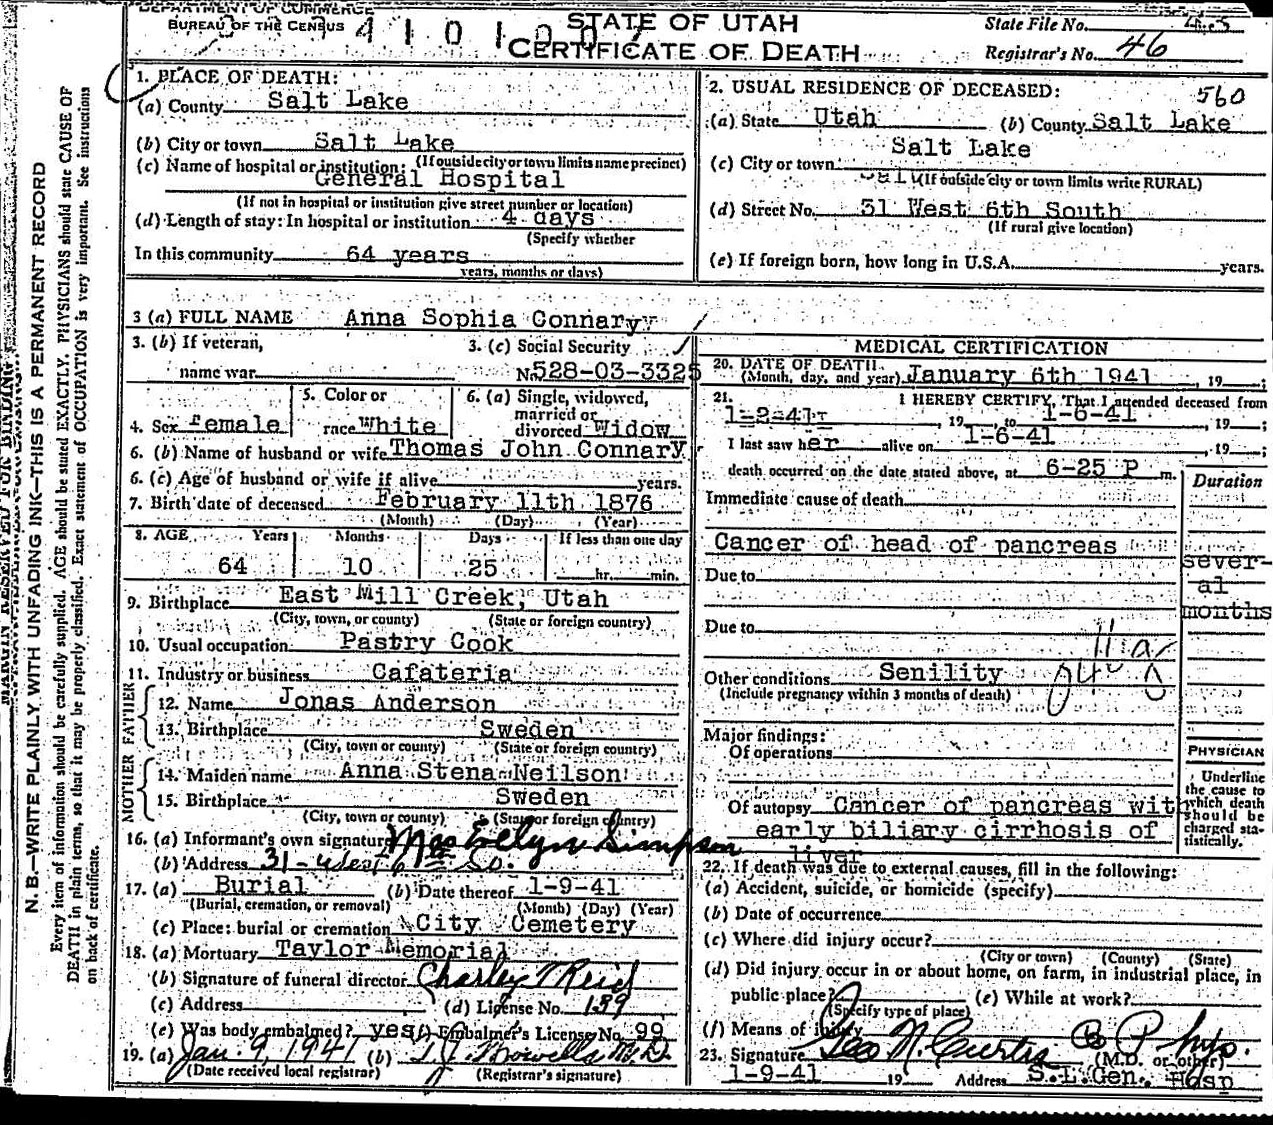 DEPARTMENT OF COMMERCE
BUREAU OF THE CENSUS
STATE OF UTAH
CERTIFICATE OF DEATH
State File No.
Registrar's No. 46
1. PLACE OF DEATH:
(a) County Salt Lake
(b) City or town Salt Lake
(If outside city or town limits name precinct)
(c) Name of hospital or institution:
General Hospital
(If not in hospital or institution give street number or location)
(d) Length of stay: In hospital or institution 4 days
(Specify whether
In this community 64 years
years, months or days)
2. USUAL RESIDENCE OF DECEASED: 560
(a) State Utah (b) County Salt Lake
(c) City or town Salt Lake
(If outside city or town limits write RURAL)
(d) Street No. 31 West 6th South
(If rural give location)
(e) If foreign born, how long in U.S.A. years.
3 (a) FULL NAME Anna Sophia Connary
3. (b) If veteran,
name war
3. (c) Social Security
No. 528-03-3325
4. Sex Female
5. Color or
race White
6. (a) Single, widowed,
married or
divorced Widow
6. (b) Name of husband or wife Thomas John Connary
6. (c) Age of husband or wife if alive years.
7. Birth date of deceased February 11th 1876
(Month) (Day) (Year)
8. AGE Years Months Days If less than one day
64 10 25 hr. min.
9. Birthplace East Mill Creek, Utah
(City, town, or county) (State or foreign country)
10. Usual occupation Pastry Cook
11. Industry or business Cafateria
FATHER
12. Name Jonas Anderson
13. Birthplace Sweden
(City, town or county) (State or foreign country)
MOTHER
14. Maiden name Anna Stena Neilson
15. Birthplace Sweden
(City, town or county) (State or foreign country)
16. (a) Informant's own signature Mrs Evelyn Simpson
(b) Address 31-West 6th So.
17. (a) Burial (b) Date thereof 1-9-41
(Burial, cremation, or removal) (Month) (Day) (Year)
(c) Place: burial or cremation City Cemetery
18. (a) Mortuary Taylor Memorial
(b) Signature of funeral director Charley Reid
(c) Address (d) License No. 189
(e) Was body embalmed? yes (f) Embalmer's License No. 99
19. (a) Jan. 9, 1941 (b) M.D.
(Date received local registrar) (Registrar's signature)
MEDICAL CERTIFICATION
20. DATE OF DEATH
(Month, day, and year) January 6th 1941, 19 ;
21. I HEREBY CERTIFY, That I attended deceased from
1-2-41, 19 , to 1-6-41, 19 ;
I last saw her alive on 1-6-41, 19 ;
death occurred on the date stated above, at 6-25 P m.
Duration
Immediate cause of death
Cancer of head of pancreas
sever-
al
months
Due to
Due to
Other conditions Senility
(Include pregnancy within 3 months of death)
Major findings:
Of operations
Of autopsy Cancer of pancreas with
early biliary cirrhosis of
liver
PHYSICIAN
Underline
the cause to
which death
should be
charged sta-
tistically.
22. If death was due to external causes, fill in the following:
(a) Accident, suicide, or homicide (specify)
(b) Date of occurrence
(c) Where did injury occur?
(City or town) (County) (State)
(d) Did injury occur in or about home, on farm, in industrial place, in
public place? (e) While at work?
(Specify type of place)
(f) Means of injury
23. Signature Geo N. Curtis
(M.D. or other)
1-9-41 19 Address S.L.Gen. Hosp
MARGIN RESERVED FOR BINDING
N. B.—WRITE PLAINLY WITH UNFADING INK—THIS IS A PERMANENT RECORD
Every item of information should be carefully supplied. AGE should be stated EXACTLY. PHYSICIANS should state CAUSE OF
DEATH in plain terms, so that it may be properly classified. Exact statement of OCCUPATION is very important. See instructions
on back of certificate.